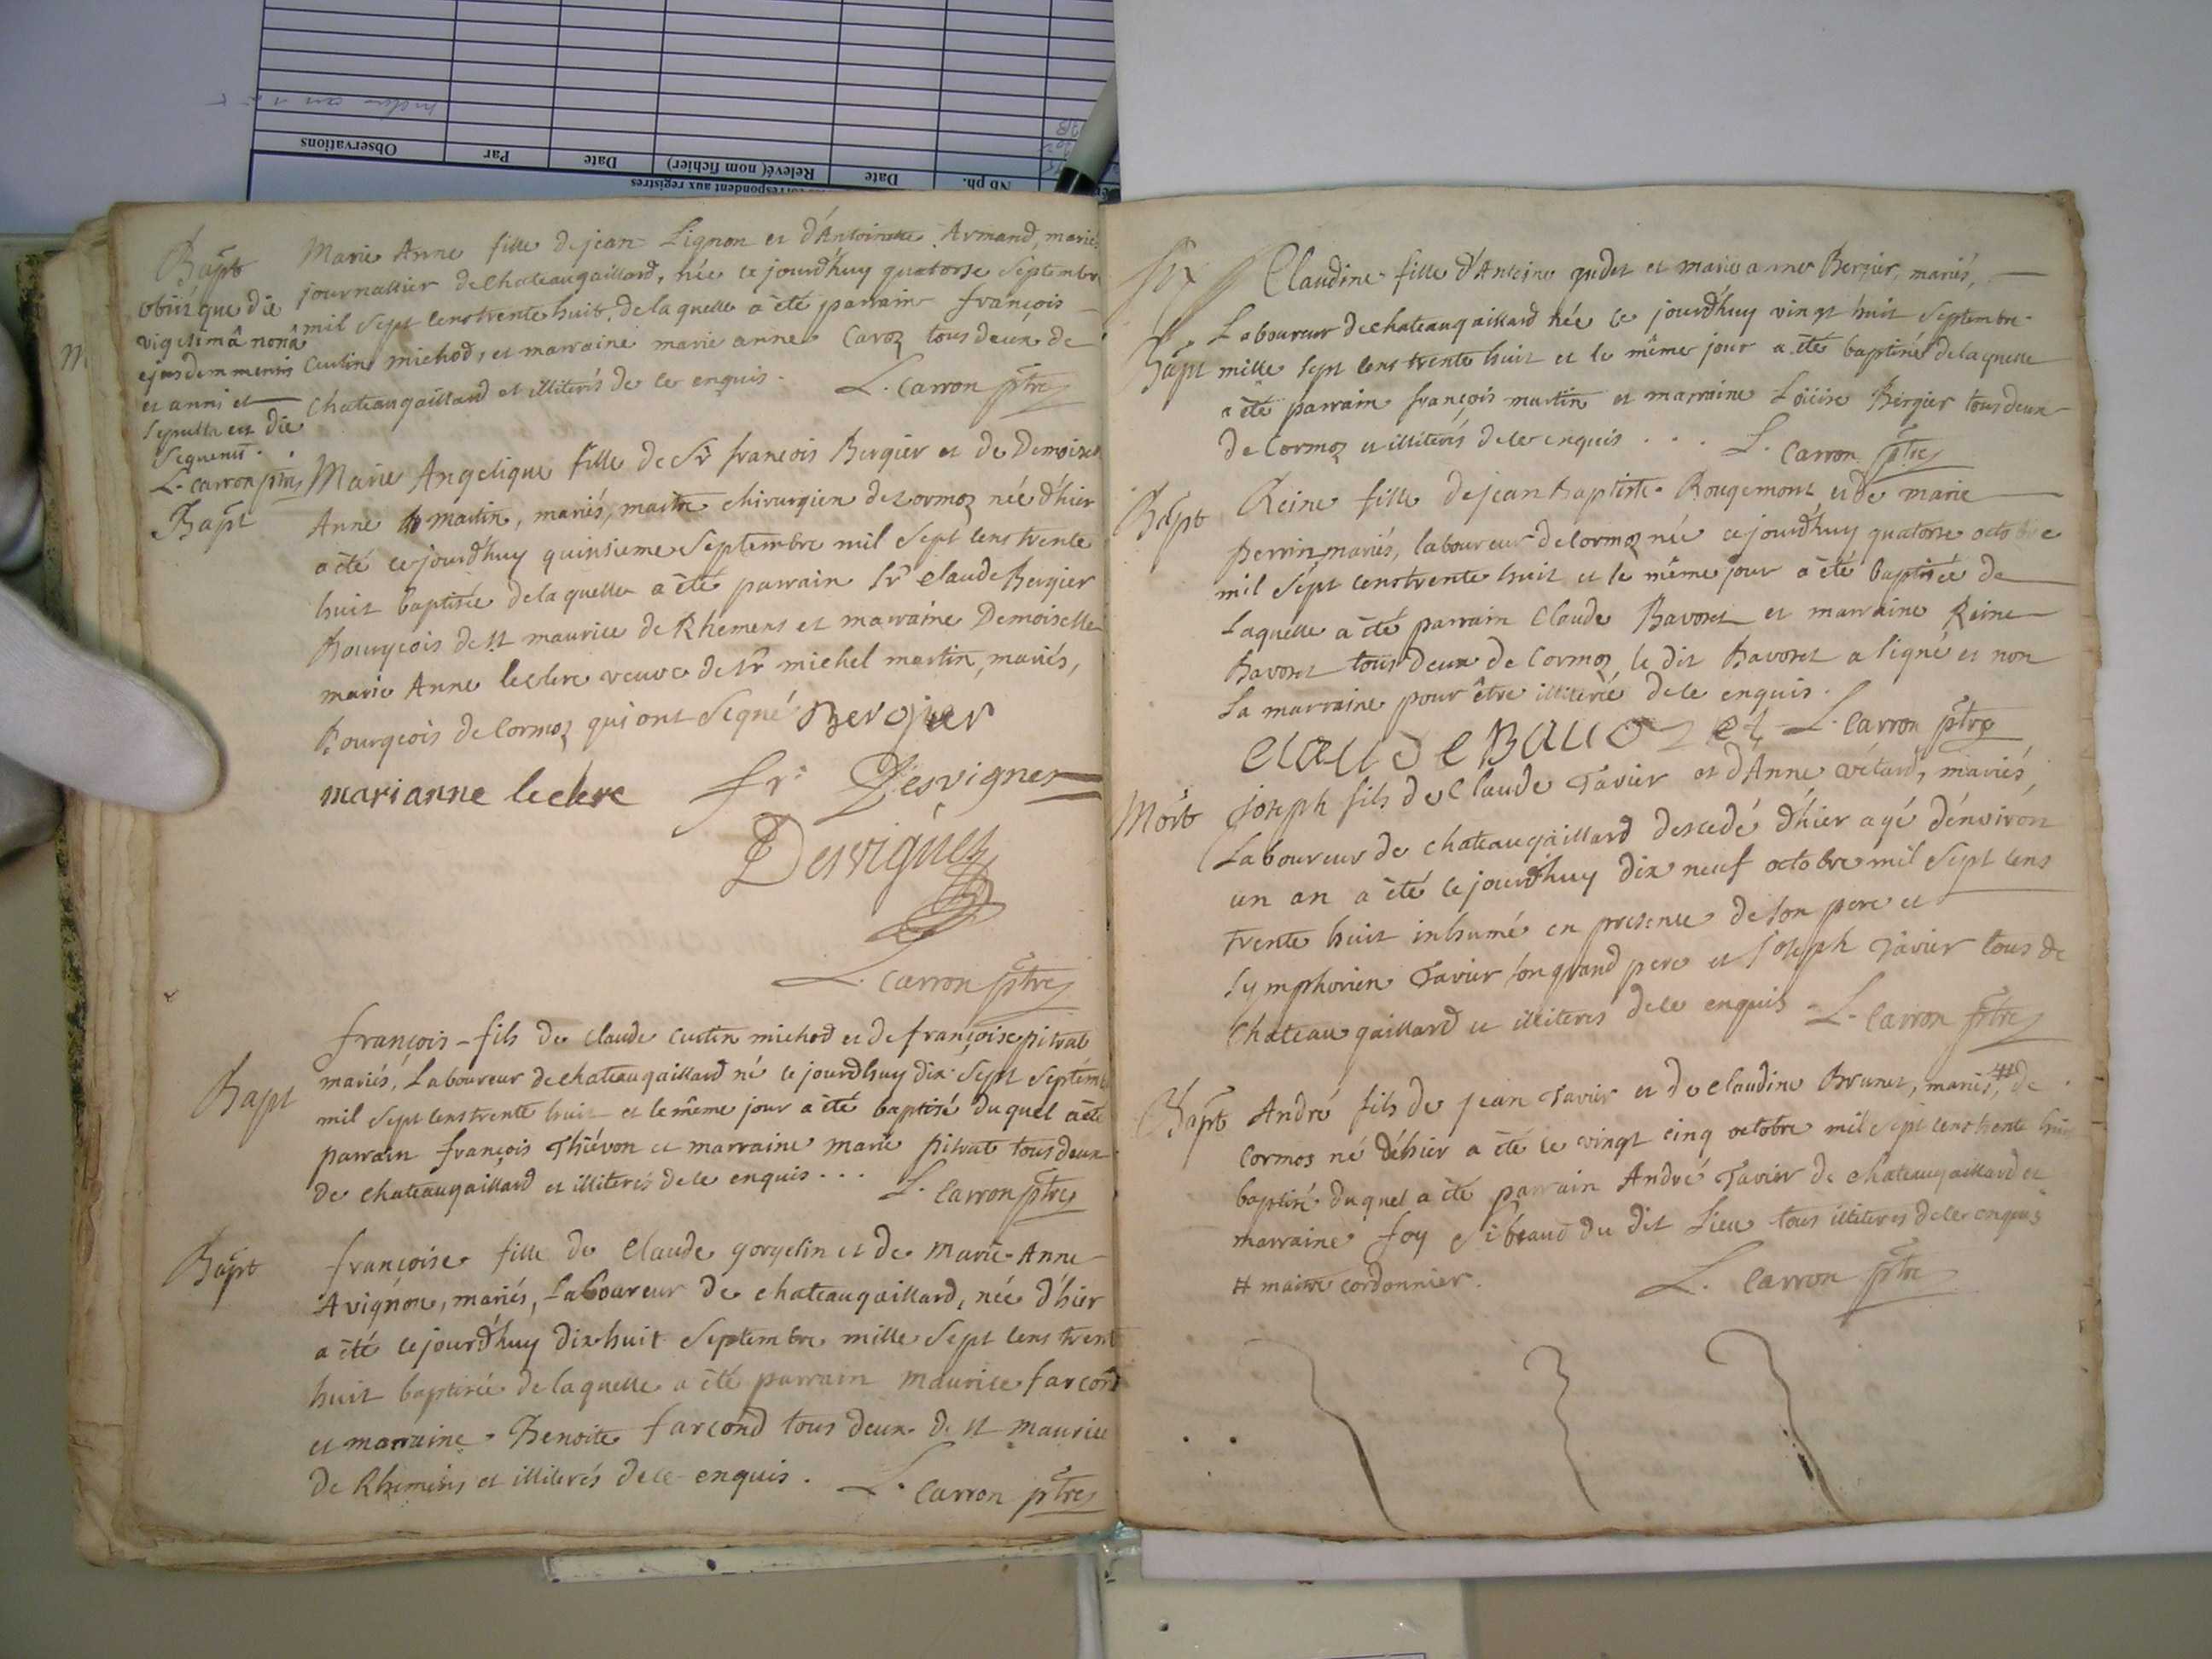 Observations
Par
Date
Relevé( nom fichier)
Date
Nb ph.
correspondent aux registres
Bapt
obiit que die
vigesimâ nonâ
ejusdem mensis
et anni et
sepulta est die
sequenti.
L. carron ptre
Marie Anne fille de jean Lignon et d'Antoinette Armand, mariés
journallier de chateaugaillard, née ce jourd'huy quatorse Septembre
mil Sept cens trente huit, de laquelle a été parrain françois
Custin michod, et marraine marie anne Caroz tous deux de
Chateaugaillard et illiterés de ce enquis. L. carron ptre
Bapt
Marie Angelique fille de Sr françois Bergier et de Demoiselle
Anne martin, mariés, maitre chirurgien de Cormoz née d'hier
a été ce jourd'huy quinsieme Septembre mil Sept cens trente
huit baptisée de laquelle a été parrain Sr claude Bergier
Bourgeois de St maurice de Rhemens et marraine Demoiselle
marie Anne leclerc veuve de Sr michel martin, mariés,
Bourgeois de Cormoz qui ont Segné Bergier
marianne leclerc fr. Desvignes
Desvignes
L. carron ptre
Bapt
françois fils de claude custin michod et de françoise pitrat
mariés, Laboureur de chateaugaillard né ce jourdhuy dix Sept Septemb
mil Sept cens trente huit et le même jour a été baptisé duquel a été
parrain françois Thiévon et marraine marie pitrat tous deux
de chateaugaillard et illiterés de ce enquis . . . L. carron ptre
Bapt
françoise fille de Claude gorgelin et de Marie-Anne
Avignon, mariés, Laboureur de chateaugaillard, née d'hier
a été ce jourd'huy dix huit Septembre mille Sept cens trent
huit baptisée de laquelle a été parrain maurice farcond
et marraine Benoite farcond tous deux de St maurice
de Rhemens et illiterés de ce enquis. L. carron ptre
Bapt
Claudine fille d'Antoine gudet et marie anne Bergier, mariés,
Laboureur de chateaugaillard née ce jourd'huy vingt huit Septembre
mille Sept cens trente huit et le même jour a été baptisée de laquelle
a été parrain françois martin et marraine Loüise Bergier tous deux
de Cormoz et illiterés de ce enquis . . . L. carron ptre
Bapt
Reine fille de jean baptiste Rougemont et de marie
perrin, mariés, laboureur de Cormoz née ce jourd'huy quatorse octobre
mil Sept cens trente huit et le même jour a été baptisée de
Laquelle a été parrain Claude Bavoret et marraine Reine
Bavoret tous deux de Cormoz, le dit Bavoret a signé et non
La marraine pour être illiterée de ce enquis.
claude Bauoret L. carron ptre
Mort
joseph fils de Claude Tavier et d'Anne vétard, mariés,
Laboureur de chateaugaillard descedé d'hier agé d'environ
un an a été ce jourd'huy dix neuf octobre mil Sept cens
trente huit inhumé en presence de son pere et
Symphorien Tavier son grand pere et joseph Tavier tous de
Chateaugaillard et illiterés de ce enquis L. carron ptre
Bapt
André fils de jean Tavier et de claudine Brunet, mariés,# de
Cormos né d'éhier a été ce vingt cinq octobre mil Sept cens trente huit
baptisé duquel a été parrain André Tavier de chateaugaillard et
marraine foy Sibeaud du dit Lieu tous illiterés de ce enquis
# maitre cordonnier. L. carron ptre